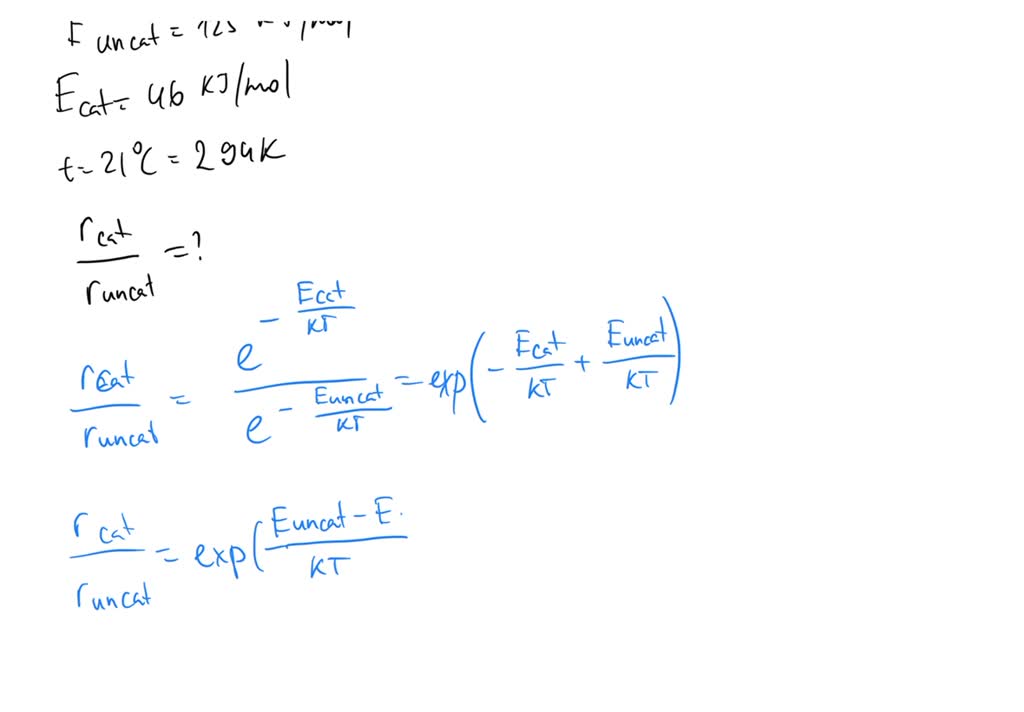 E uncat = 125 KJ/mol
Ecat = 46 KJ/mol
t = 21°C = 294K
rcat / runcat = ?
rcat / runcat = e^(- Ecat/KT) / e^(- Euncat/KT) = exp(- Ecat/KT + Euncat/KT)
rcat / runcat = exp( Euncat - E. / KT